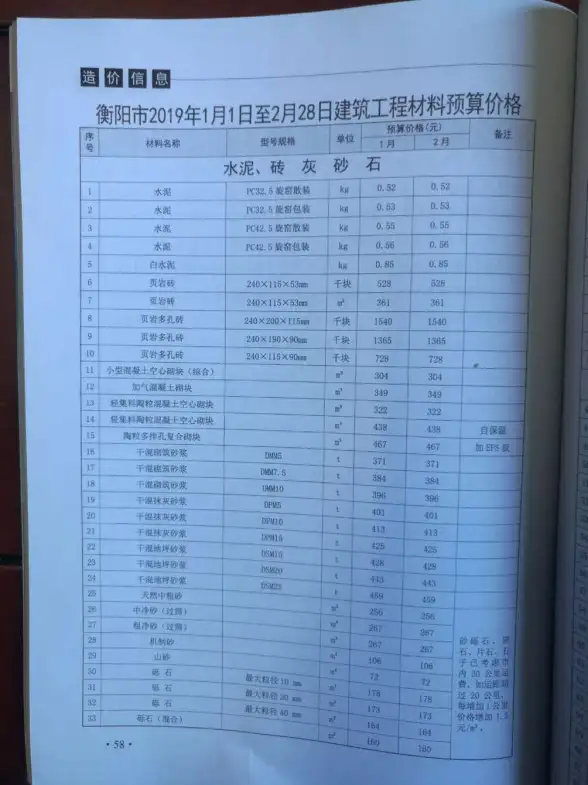 造价信息
衡阳市2019年1月1日至2月28日建筑工程材料预算价格
序号 材料名称 型号规格 单位 预算价格(元) 备注
1月 2月
水泥、砖 灰 砂 石
1 水泥 PC32.5旋窑散装 kg 0.52 0.52
2 水泥 PC32.5旋窑包装 kg 0.53 0.53
3 水泥 PC42.5旋窑散装 kg 0.55 0.55
4 水泥 PC42.5旋窑包装 kg 0.56 0.56
5 白水泥 kg 0.85 0.85
6 页岩砖 240×115×53mm 千块 528 538
7 页岩砖 240×115×53mm m³ 361 361
8 页岩多孔砖 240×200×115mm 千块 1540 1540
9 页岩多孔砖 240×190×90mm 千块 1365 1365
10 页岩多孔砖 240×115×90mm 千块 728 728
11 小型混凝土空心砌块(综合) m³ 304 304
12 加气混凝土砌块 m³ 349 349
13 轻集料陶粒混凝土空心砌块 m³ 322 322
14 轻集料陶粒混凝土空心砌块 m³ 438 438 自保温
15 陶粒多排孔复合砌块 m³ 467 467 加EPS板
16 干混砌筑砂浆 DMM5 t 371 371
17 干混砌筑砂浆 DMM7.5 t 384 384
18 干混砌筑砂浆 DMM10 t 396 396
19 干混抹灰砂浆 DPM5 t 401 401
20 干混抹灰砂浆 DPM10 t 413 413
21 干混抹灰砂浆 DPM15 t 425 425
22 干混地坪砂浆 DSM15 t 428 428
23 干混地坪砂浆 DSM20 t 443 443
24 干混地坪砂浆 DSM25 t 459 459
25 天然中粗砂 m³ 256 256
26 中净砂(过筛) m³ 267 267
27 粗净砂(过筛) m³ 267 267
28 机制砂 m³ 106 106
29 山砂 m³ 72 72
30 砾石 最大粒径10mm m³ 178 178
31 砾石 最大粒径20mm m³ 173 173
32 砾石 最大粒径40mm m³ 164 164
33 砾石(混合) m³ 160 160
砂砾石、
石、片石、
子已考虑市
内20公里运
费,如运距超
过20公里,
每增加1公里
价格增加1.5
元/m³。
·58·